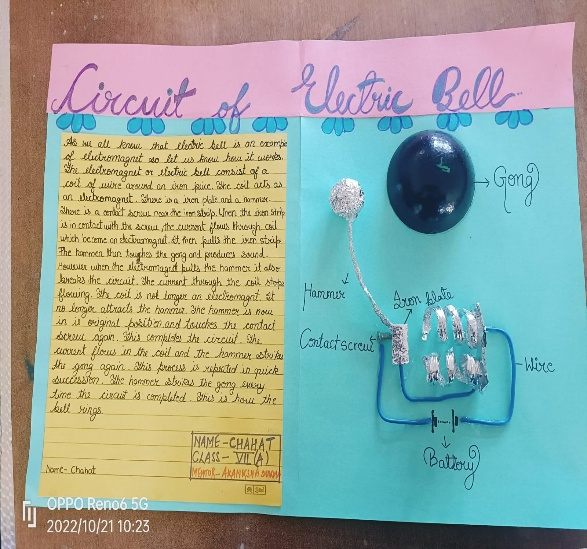 Circuit of Electric Bell
As we all know that electric bell is an example
of electromagnet so let us know how it works.
The electromagnet or electric bell consist of a
coil of wire around an iron piece. The coil acts as
an electromagnet. There is a iron plate and a hammer.
There is a contact screw near the iron strip. When the iron strip
is in contact with the screw, the current flows through coil
which become an electromagnet. It then pulls the iron strip.
The hammer then touches the gong and produces sound.
However when the electromagnet pulls the hammer it also
breaks the circuit. The current through the coil stops
flowing. The coil is not longer an electromagnet. It
no longer attracts the hammer. The hammer is now
in is original position and touches the contact
screw again. This completes the circuit. The
current flows in the coil and the hammer strikes
the gong again. This process is repeated in quick
succession. The hammer strikes the gong every
time the circuit is completed. This is how the
bell rings.
NAME-CHAHAT
CLASS- VII (A)
MENTOR- AKANKSHA
Name- Chahat
Gong
Hammer
Iron plate
Contact screw
Wire
Battery
OPPO Reno6 5G
2022/10/21 10:23